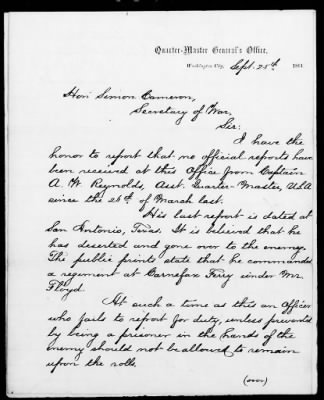 Quarter-Master General's Office,
Washington City, Sept. 25th 1861
Hon. Simon Cameron,
Secretary of War,
Sir:
I have the
honor to report that no official reports have
been received at this Office from Captain
A. W. Reynolds, Asst. Quarter-Master, U.S.A
since the 26th of March last.
His last report is dated at
San Antonio, Texas. It is believed that he
has deserted and gone over to the enemy.
The public prints state that he commanded
a regiment at Carnefax Ferry under Mr.
Floyd.
At such a time as this an Officer
who fails to report for duty, unless prevented
by being a prisoner in the hands of the
enemy should not be allowed to remain
upon the rolls.
(over)